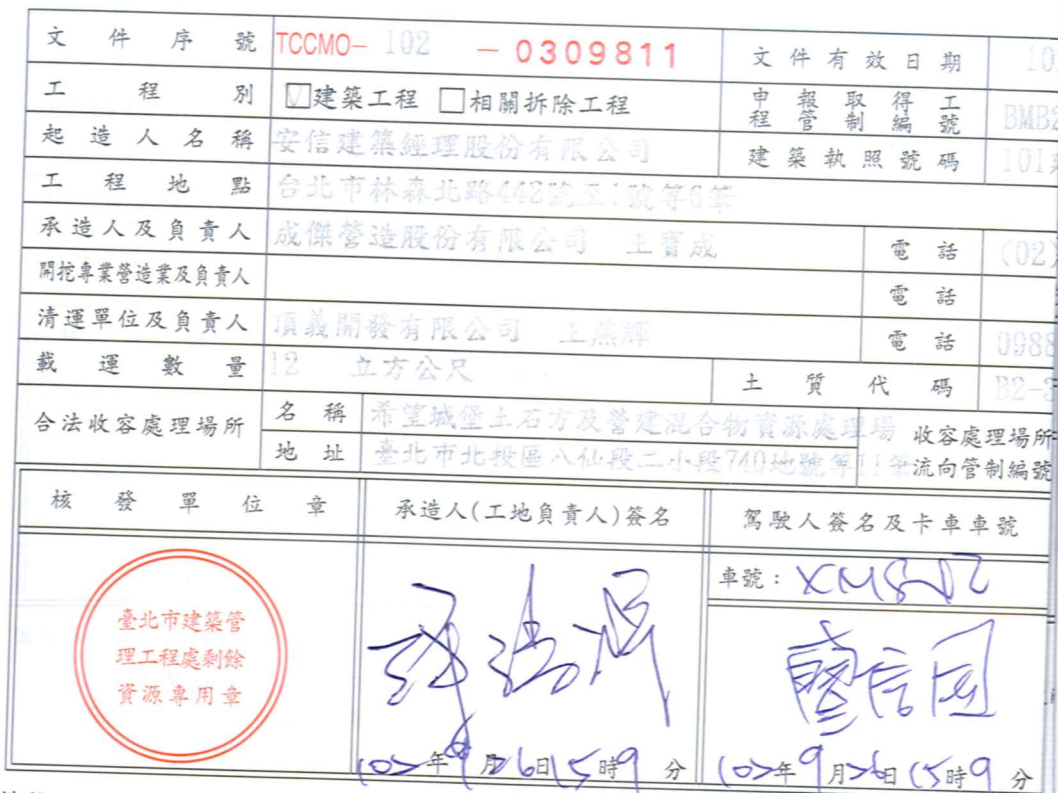 文件序號 TCCMO- 102 - 0309811 文件有效日期 10
工程別 ☑建築工程 □相關拆除工程 申報取得工程管制編號 BMB2
起造人名稱 安信建築經理股份有限公司 建築執照號碼 101
工程地點 台北市林森北路442號至1號等6筆
承造人及負責人 成傑營造股份有限公司 王寶成 電話 (02)
開挖專業營造業及負責人 電話
清運單位及負責人 頂義開發有限公司 王燕輝 電話 0988
載運數量 12 立方公尺 土質代碼 B2-3
合法收容處理場所 名稱 希望城堡土石方及營建混合物資源處理場 收容處理場所
地址 臺北市北投區八仙段二小段740地號等11筆 流向管制編號
核發單位章 承造人(工地負責人)簽名 駕駛人簽名及卡車車號
車號：
臺北市建築管
理工程處剩餘
資源專用章
信国
102年9月26日15時9分 102年9月26日15時9分